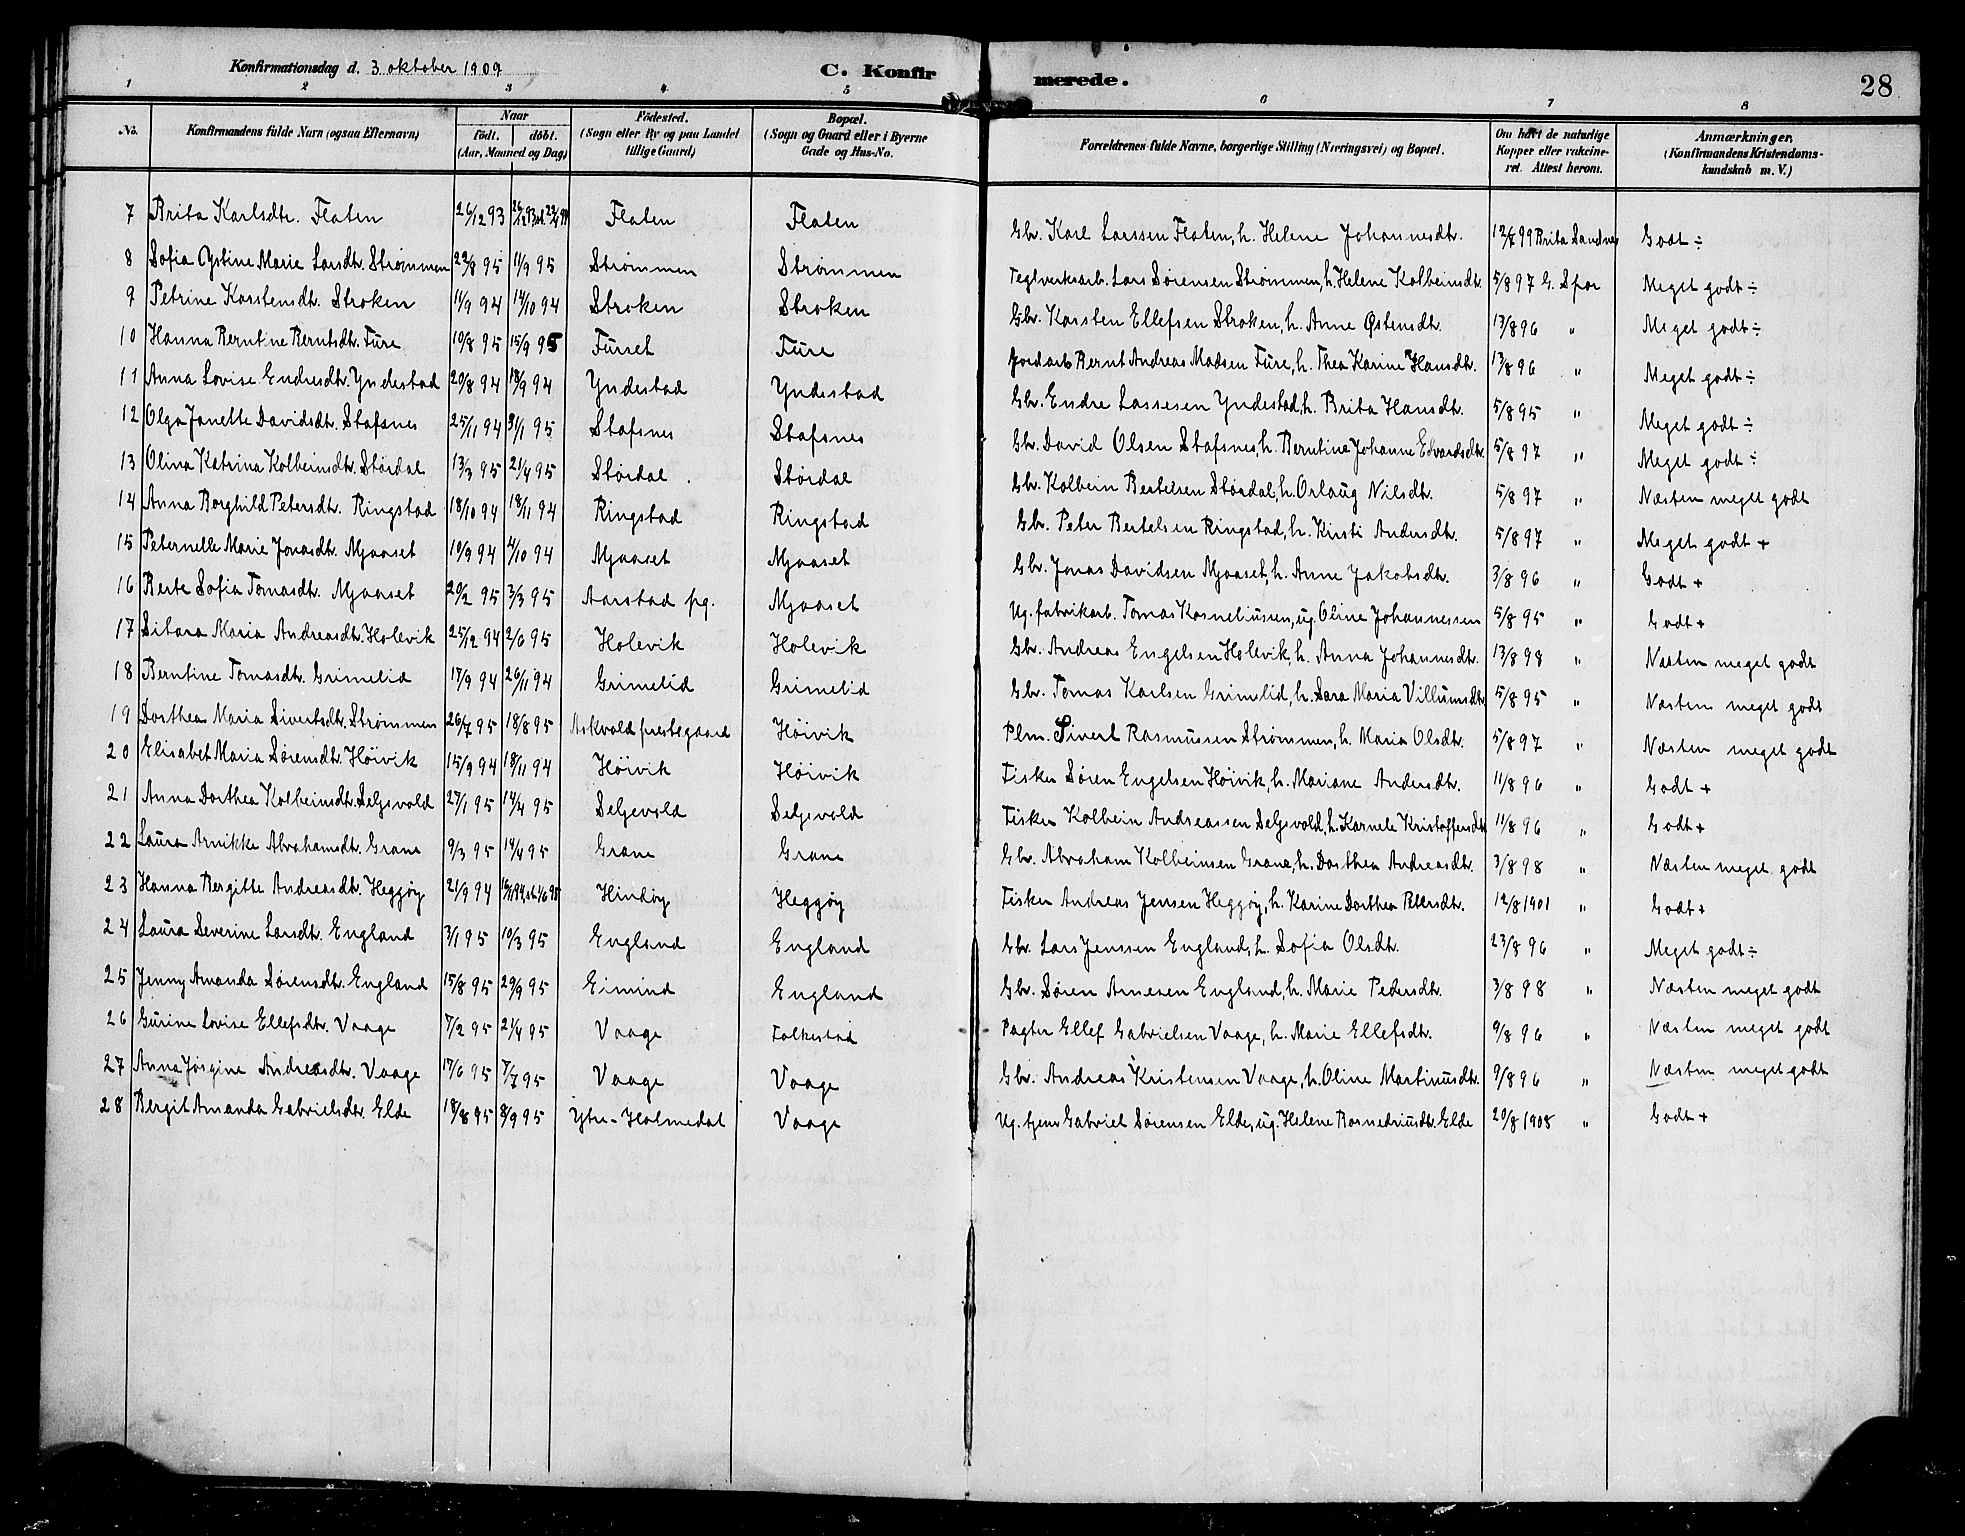 Konfirmationsdag d. 3 oktober 1909 C. Konfirmerede. 28
1 2 3 4 5 6 7 8
No. Konfirmandens fulde Navn (ogsaa Efternavn) Naar födt. döbt. (Aar, Maaned og Dag) Födested. (Sogn eller By og paa Landet tillige Gaard) Bopæl. (Sogn og Gaard eller i Byerne Gade og Hus-No. Forældrenes fulde Navne, borgerlige Stilling (Næringsvei) og Bopæl. Om havt de naturlige Kopper eller vakcineret. Attest herom. Anmærkninger. (Konfirmandens Kristendomskundskab m. V.)
7 Brita Karlsdtr. Flaten 26/12 93 Flaten Flaten Gbr. Karl Larssen Flaten, h. Helene Johannesdtr. 12/7 99 Brita Sandnes Godt ÷
8 Sofia Oystine Marie Larsdtr. Strømmen 22/8 95 11/9 95 Strømmen Strømmen Teglverksarb. Lars Sørensen Strømmen, h. Helene Kolbeinsdtr. 5/8 97 G. Spor Meget godt ÷
9 Petrine Karstensdtr. Stroken 11/9 94 14/10 94 Stroken Stroken Gbr. Karsten Ellefsen Stroken, h. Anne Østensdtr. 13/8 96 " Meget godt ÷
10 Hanna Berntine Berntsdtr. Fure 10/8 95 15/9 95 Furset Fure Jordarb Bernt Andreas Madsen Fure, h. Thea Karine Hansdtr. 13/8 96 " Meget godt ÷
11 Anna Lovise Endresdtr. Yndestad 20/8 94 18/9 94 Yndestad Yndestad Gbr. Endre Lassesen Yndestad, h. Brita Hansdtr. 5/8 95 " Meget godt ÷
12 Olga Janette Davidsdtr. Stafsnes 25/11 94 31/1 95 Stafsnes Stafsnes Gbr. David Olsen Stafsnes, h. Berntine Johanne Edvardsdtr. 5/8 97 " Meget godt ÷
13 Olina Katrina Kolbeinsdtr. Størdal 13/3 95 21/4 95 Størdal Størdal Gbr. Kolbein Bertelsen Størdal, h. Orlaug Nilsdtr. 5/8 97 " Næsten meget godt
14 Anna Borghild Petersdtr. Ringstad 18/10 94 18/11 94 Ringstad Ringstad Gbr. Peter Bertelsen Ringstad, h. Kirsti Andersdtr. 5/8 97 " Meget godt +
15 Peternelle Marie Jonasdtr. Mjaaset 10/9 94 4/10 94 Mjaaset Mjaaset Gbr. Jonas Davidsen Mjaaset, h. Anne Jakobsdtr. 3/8 96 " Godt +
16 Berte Sofia Tomasdtr. Mjaaset 20/2 95 3/3 95 Aarstad pg. Mjaaset Ug. fabrikarb. Tomas Korneliussen, ug. Oline Johannessen 5/8 95 " Godt +
17 Sitara Maria Andreasdtr. Holevik 25/12 94 2/6 95 Holevik Holevik Gbr. Andreas Engelsen Holevik, h. Anna Johannesdtr. 13/8 98 " Næsten meget godt
18 Berntine Tomasdtr. Grimelid 17/9 94 26/11 94 Grimelid Grimelid Gbr. Tomas Karlsen Grimelid, h. Sara Maria Villumsdtr. 5/8 95 " Næsten meget godt
19 Dorthea Maria Sivertsdtr. Strømmen 26/7 95 18/8 95 Askvold prestegaard Høivik Plm. Sivert Rasmussen Strømmen, h. Maria Olsdtr. 5/8 97 " Næsten meget godt
20 Elisabet Maria Sørensdtr. Høivik 15/9 94 18/11 94 Høivik Høivik Fisker Søren Engelsen Høivik, h. Mariane Andersdtr. 11/8 96 " Godt +
21 Anna Dorthea Kolbeinsdtr. Seljevold 27/1 95 14/4 95 Seljevold Seljevold Fisker Kolbein Andreassen Seljevold, h. Karnele Kristoffersdtr 11/8 96 " Godt +
22 Laura Arnikke Abrahamsdtr. Grane 9/3 95 14/4 95 Grane Grane Gbr. Abraham Kolbeinsen Grane, h. Dorthea Andreasdtr. 3/8 98 " Næsten meget godt
23 Hanna Bergitte Andreasdtr. Heggøy 21/9 94 Hindøy Heggøy Fisker Andreas Jensen Heggøy, h. Karine Dorthea Petersdtr. 12/8 1901 " Godt +
24 Laura Severine Larsdtr. England 3/1 95 10/3 95 England England Gbr. Lars Jenssen England, h. Sofia Olsdtr. 23/8 96 " Meget godt ÷
25 Jenny Amanda Sørensdtr. England 15/8 95 29/9 95 Eimind England Gbr. Søren Arnesen England, h. Marie Pedersdtr. 3/8 98 " Næsten meget godt
26 Gurine Lovise Ellefsdtr. Vaage 7/2 95 21/4 95 Vaage Folkestad Pagter Ellef Gabrielsen Vaage, h. Marie Ellefsdtr. 9/8 96 " Næsten meget godt
27 Anna Jørgine Andreasdtr. Vaage 17/6 95 7/7 95 Vaage Vaage Gbr. Andreas Kristensen Vaage, h. Oline Martinusdtr. 9/8 96 " Næsten meget godt
28 Bergit Amanda Gabrielsdtr. Elde 18/8 95 8/9 95 Ytre-Holmedal Vaage Ug. tjener Gabriel Sørensen Elde, ug. Helene Rasmedriusdtr. Elde 20/8 1908 " Godt +